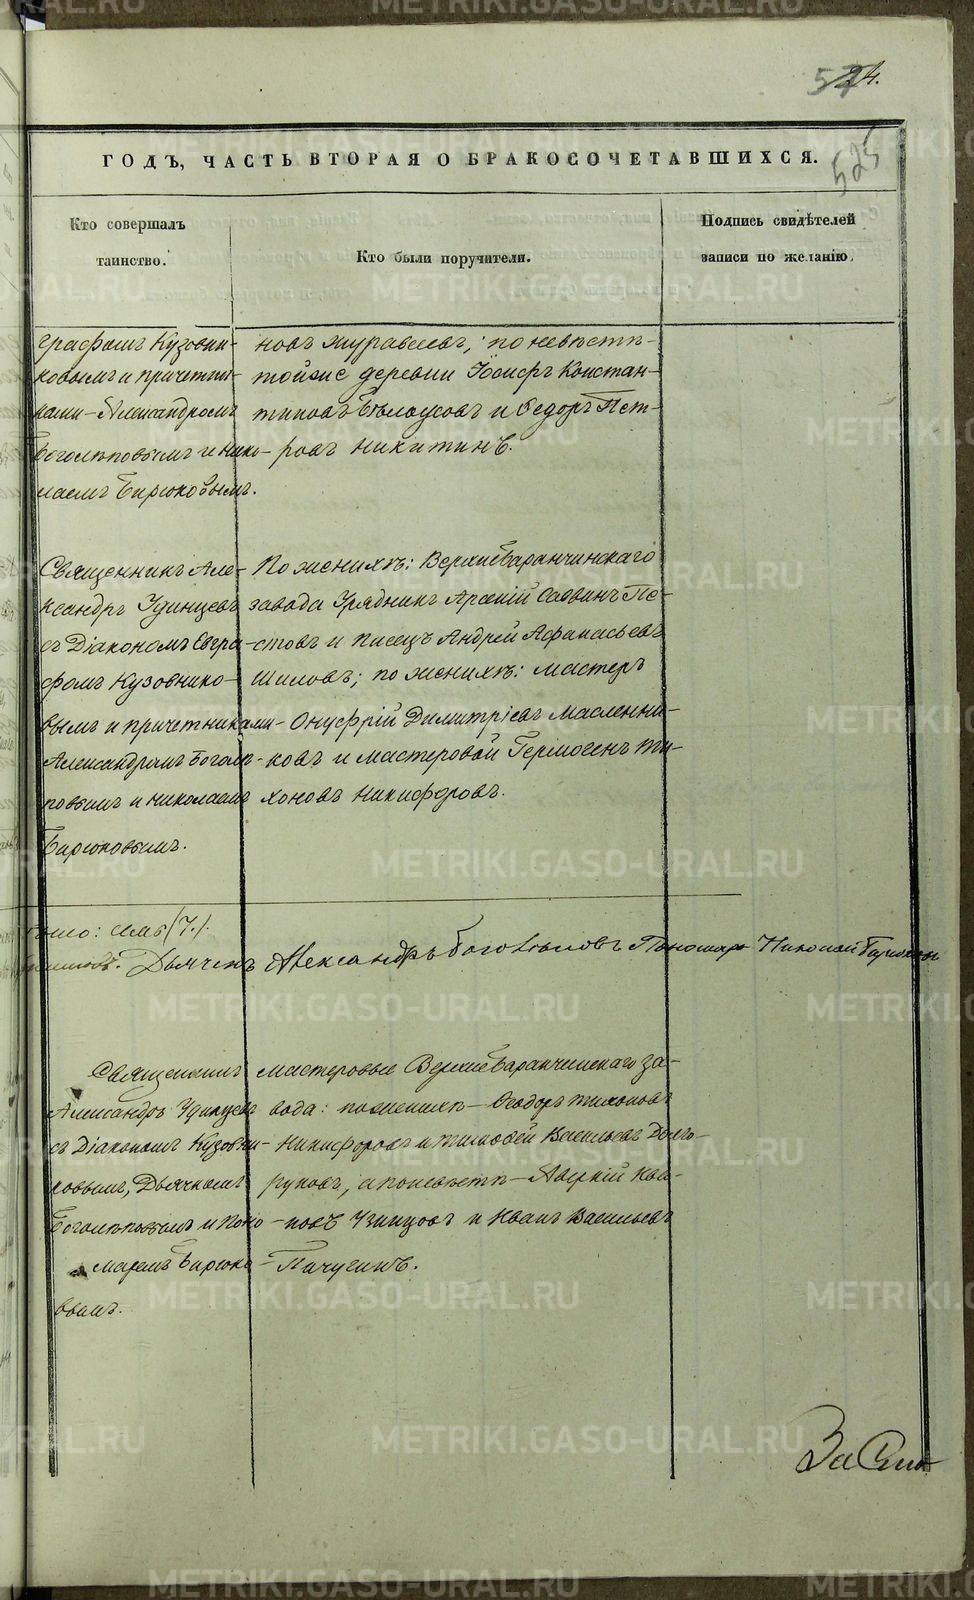 24.
525
ГОДЪ, ЧАСТЬ ВТОРАЯ О БРАКОСОЧЕТАВШИХСЯ.
Кто совершалъ
таинство.
Кто были поручители.
Подпись свидѣтелей
записи по желанію.
графомъ Кузовни-
ковымъ и причетни-
ками - Александромъ
Боголѣповымъ и Нико-
лаемъ Бирюковымъ.
новъ Журавлевъ; по невѣстѣ -
той же деревни Іосифъ Констан-
тиновъ Бѣлоусовъ и Ѳедоръ Пет-
ровъ Никитинъ.
Священникъ Але-
ксандръ Удинцевъ
съ Діакономъ Евгра-
фомъ Кузовнико-
вымъ и причетниками -
Александромъ Боголѣ-
повымъ и Николаемъ
Бирюковымъ.
По женихѣ: Верхнебаранчинскаго
завода Урядникъ Арсеній Саввинъ Пе-
стовъ и писецъ Андрей Афанасьевъ
Шиловъ; по женихѣ: мастеръ
Онуфрій Димитріевъ Масленни-
ковъ и мастеровой Гермогенъ Ти-
хоновъ Никифоровъ.
семь (7.)
Дьячекъ Александръ Боголѣповъ Пономарь Николай Бирюковъ
Священникъ
Александръ Удинцевъ
съ Діакономъ Кузовни-
ковымъ, Дьячкомъ
Боголѣповымъ и Поно-
маремъ Бирюко-
вымъ.
Мастеровые Верхнебаранчинскаго за-
вода: по женихѣ - Ѳеодоръ Тихоновъ
Никифоровъ и Тимофей Васильевъ Долго-
руковъ, а по невѣстѣ - Аверкій
Удинцовъ и Иванъ Васильевъ
Пичугинъ.
METRIKI.GASO-URAL.RU